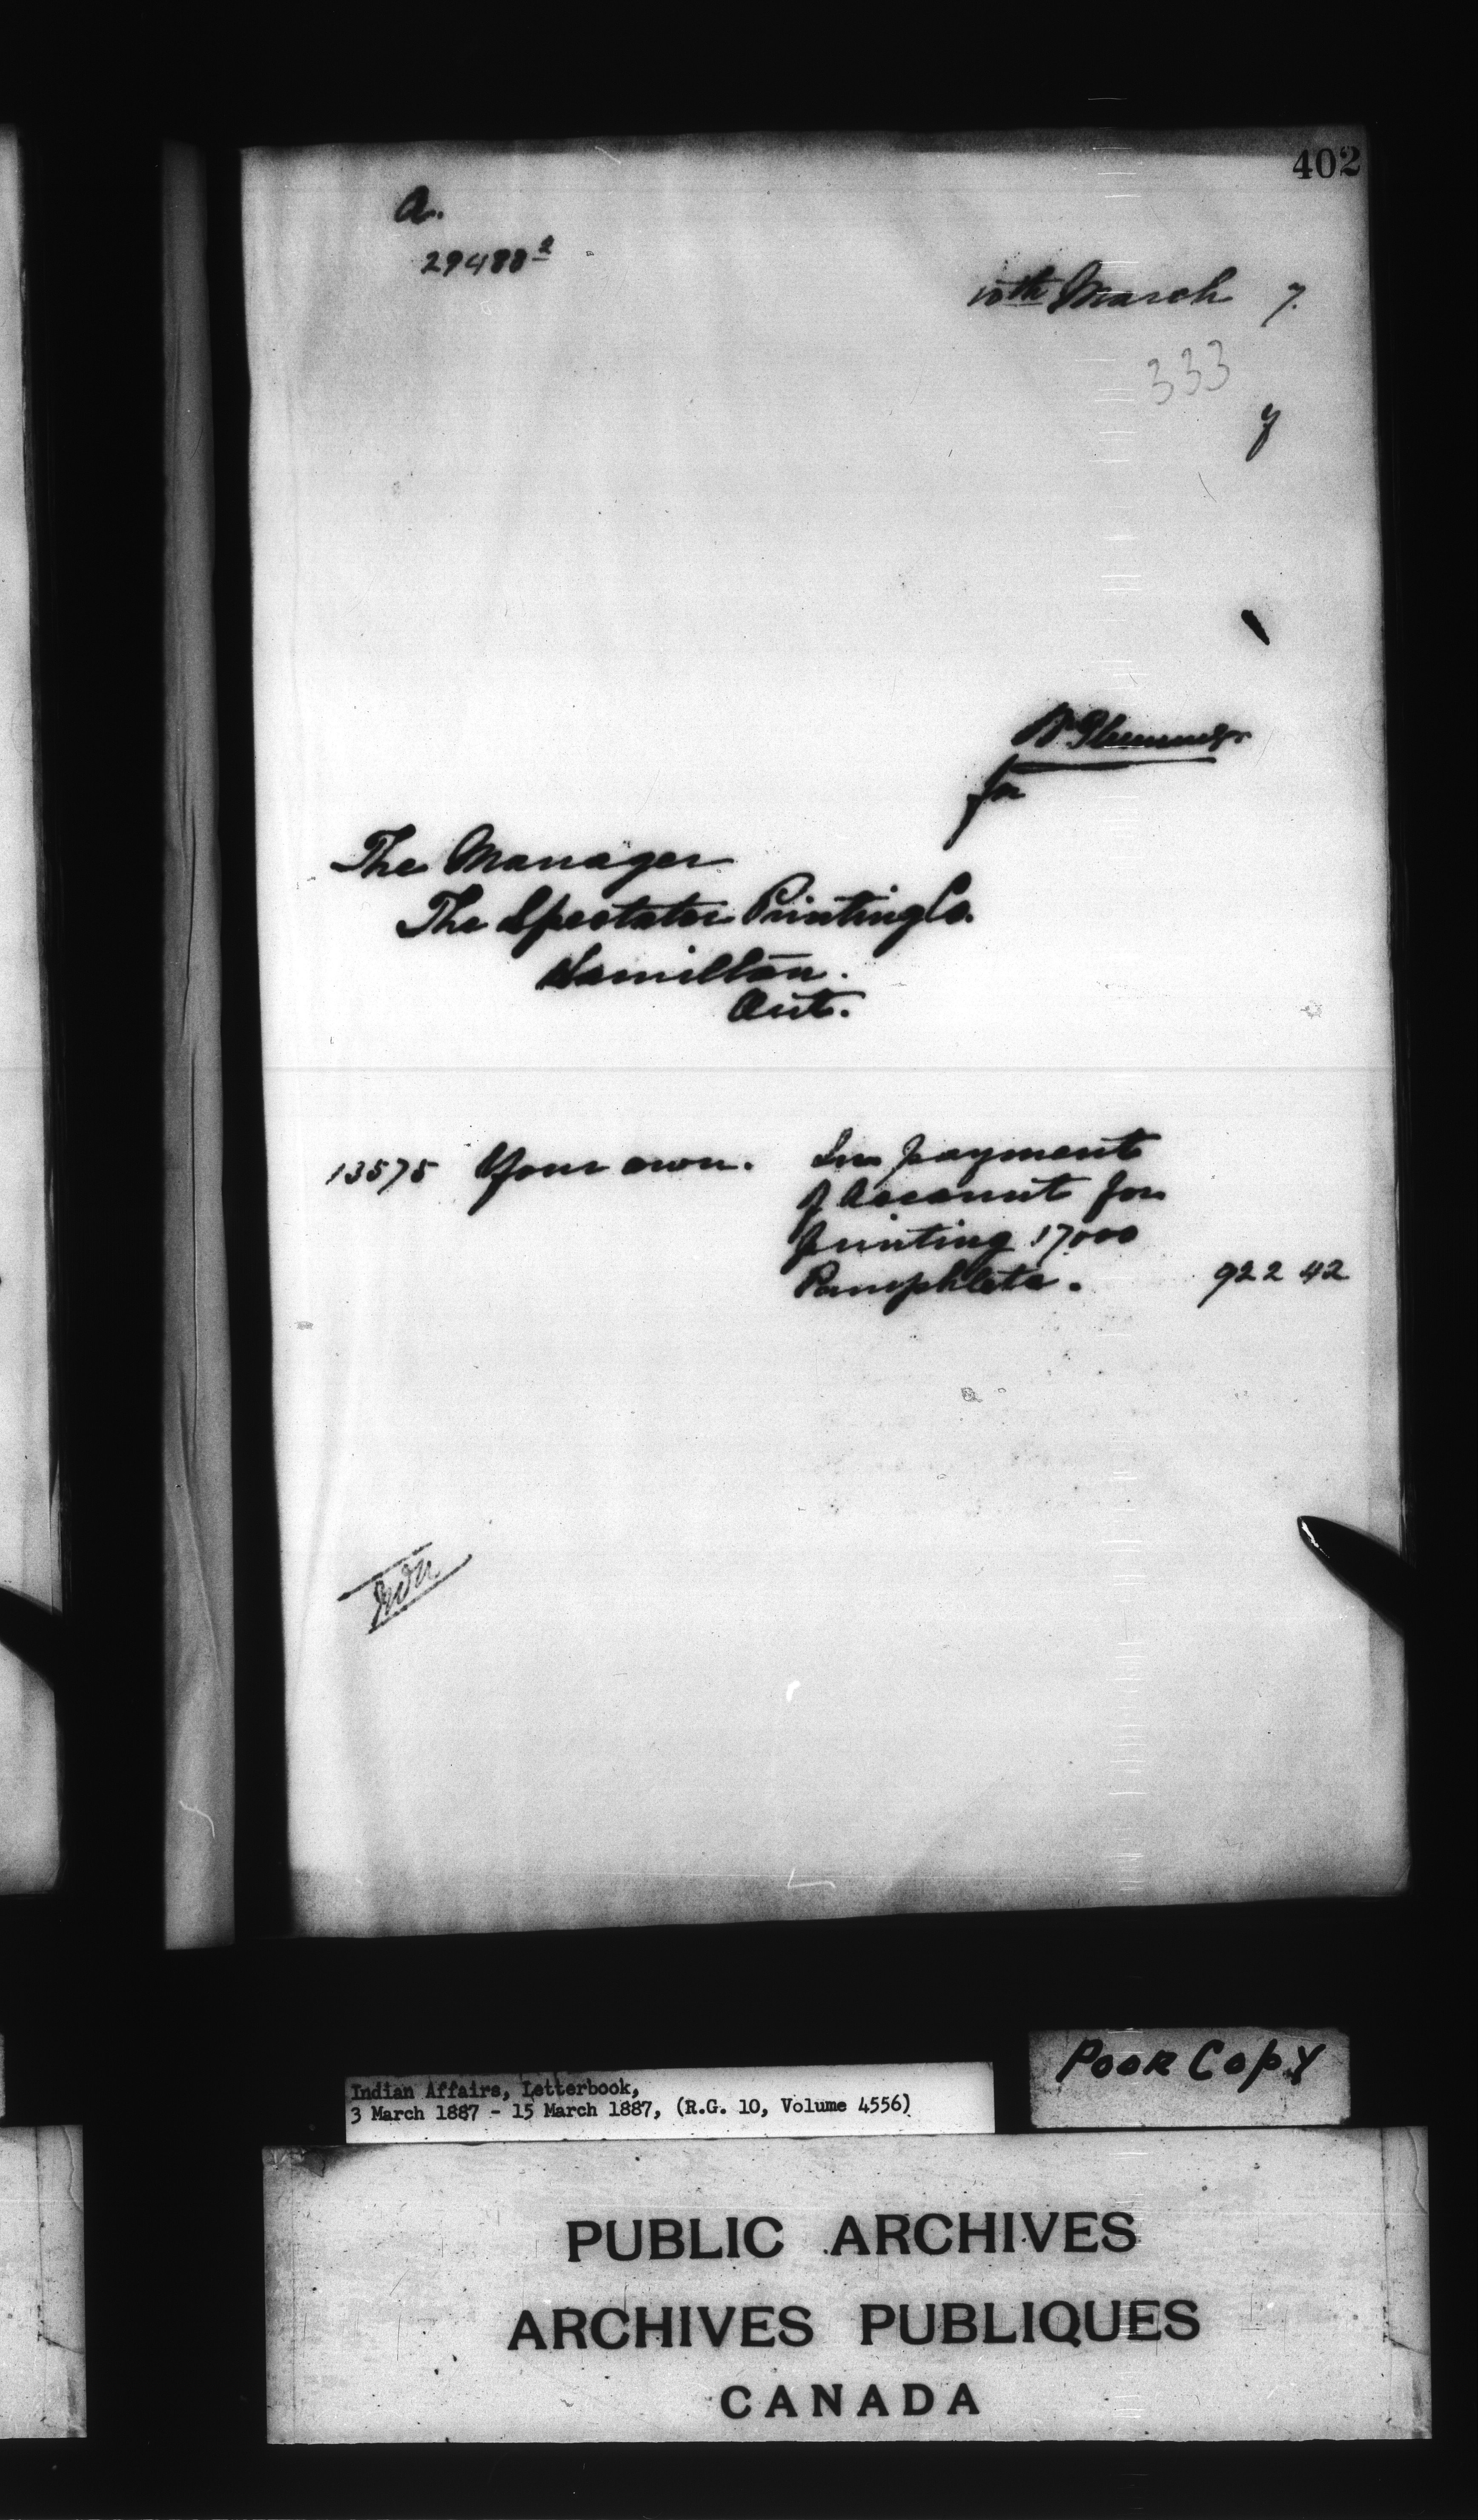 402
a.
29488²
10th March 7.
333
y
W Plummer
for
The Manager
The Spectator Printing Co.
Hamilton.
Ont.
13575 Your own. In payment
of Account for
printing 17000
Pamphlets. 922 42
Indian Affairs, Letterbook,
3 March 1887 - 15 March 1887, (R.G. 10, Volume 4556)
POOR COPY
PUBLIC ARCHIVES
ARCHIVES PUBLIQUES
CANADA